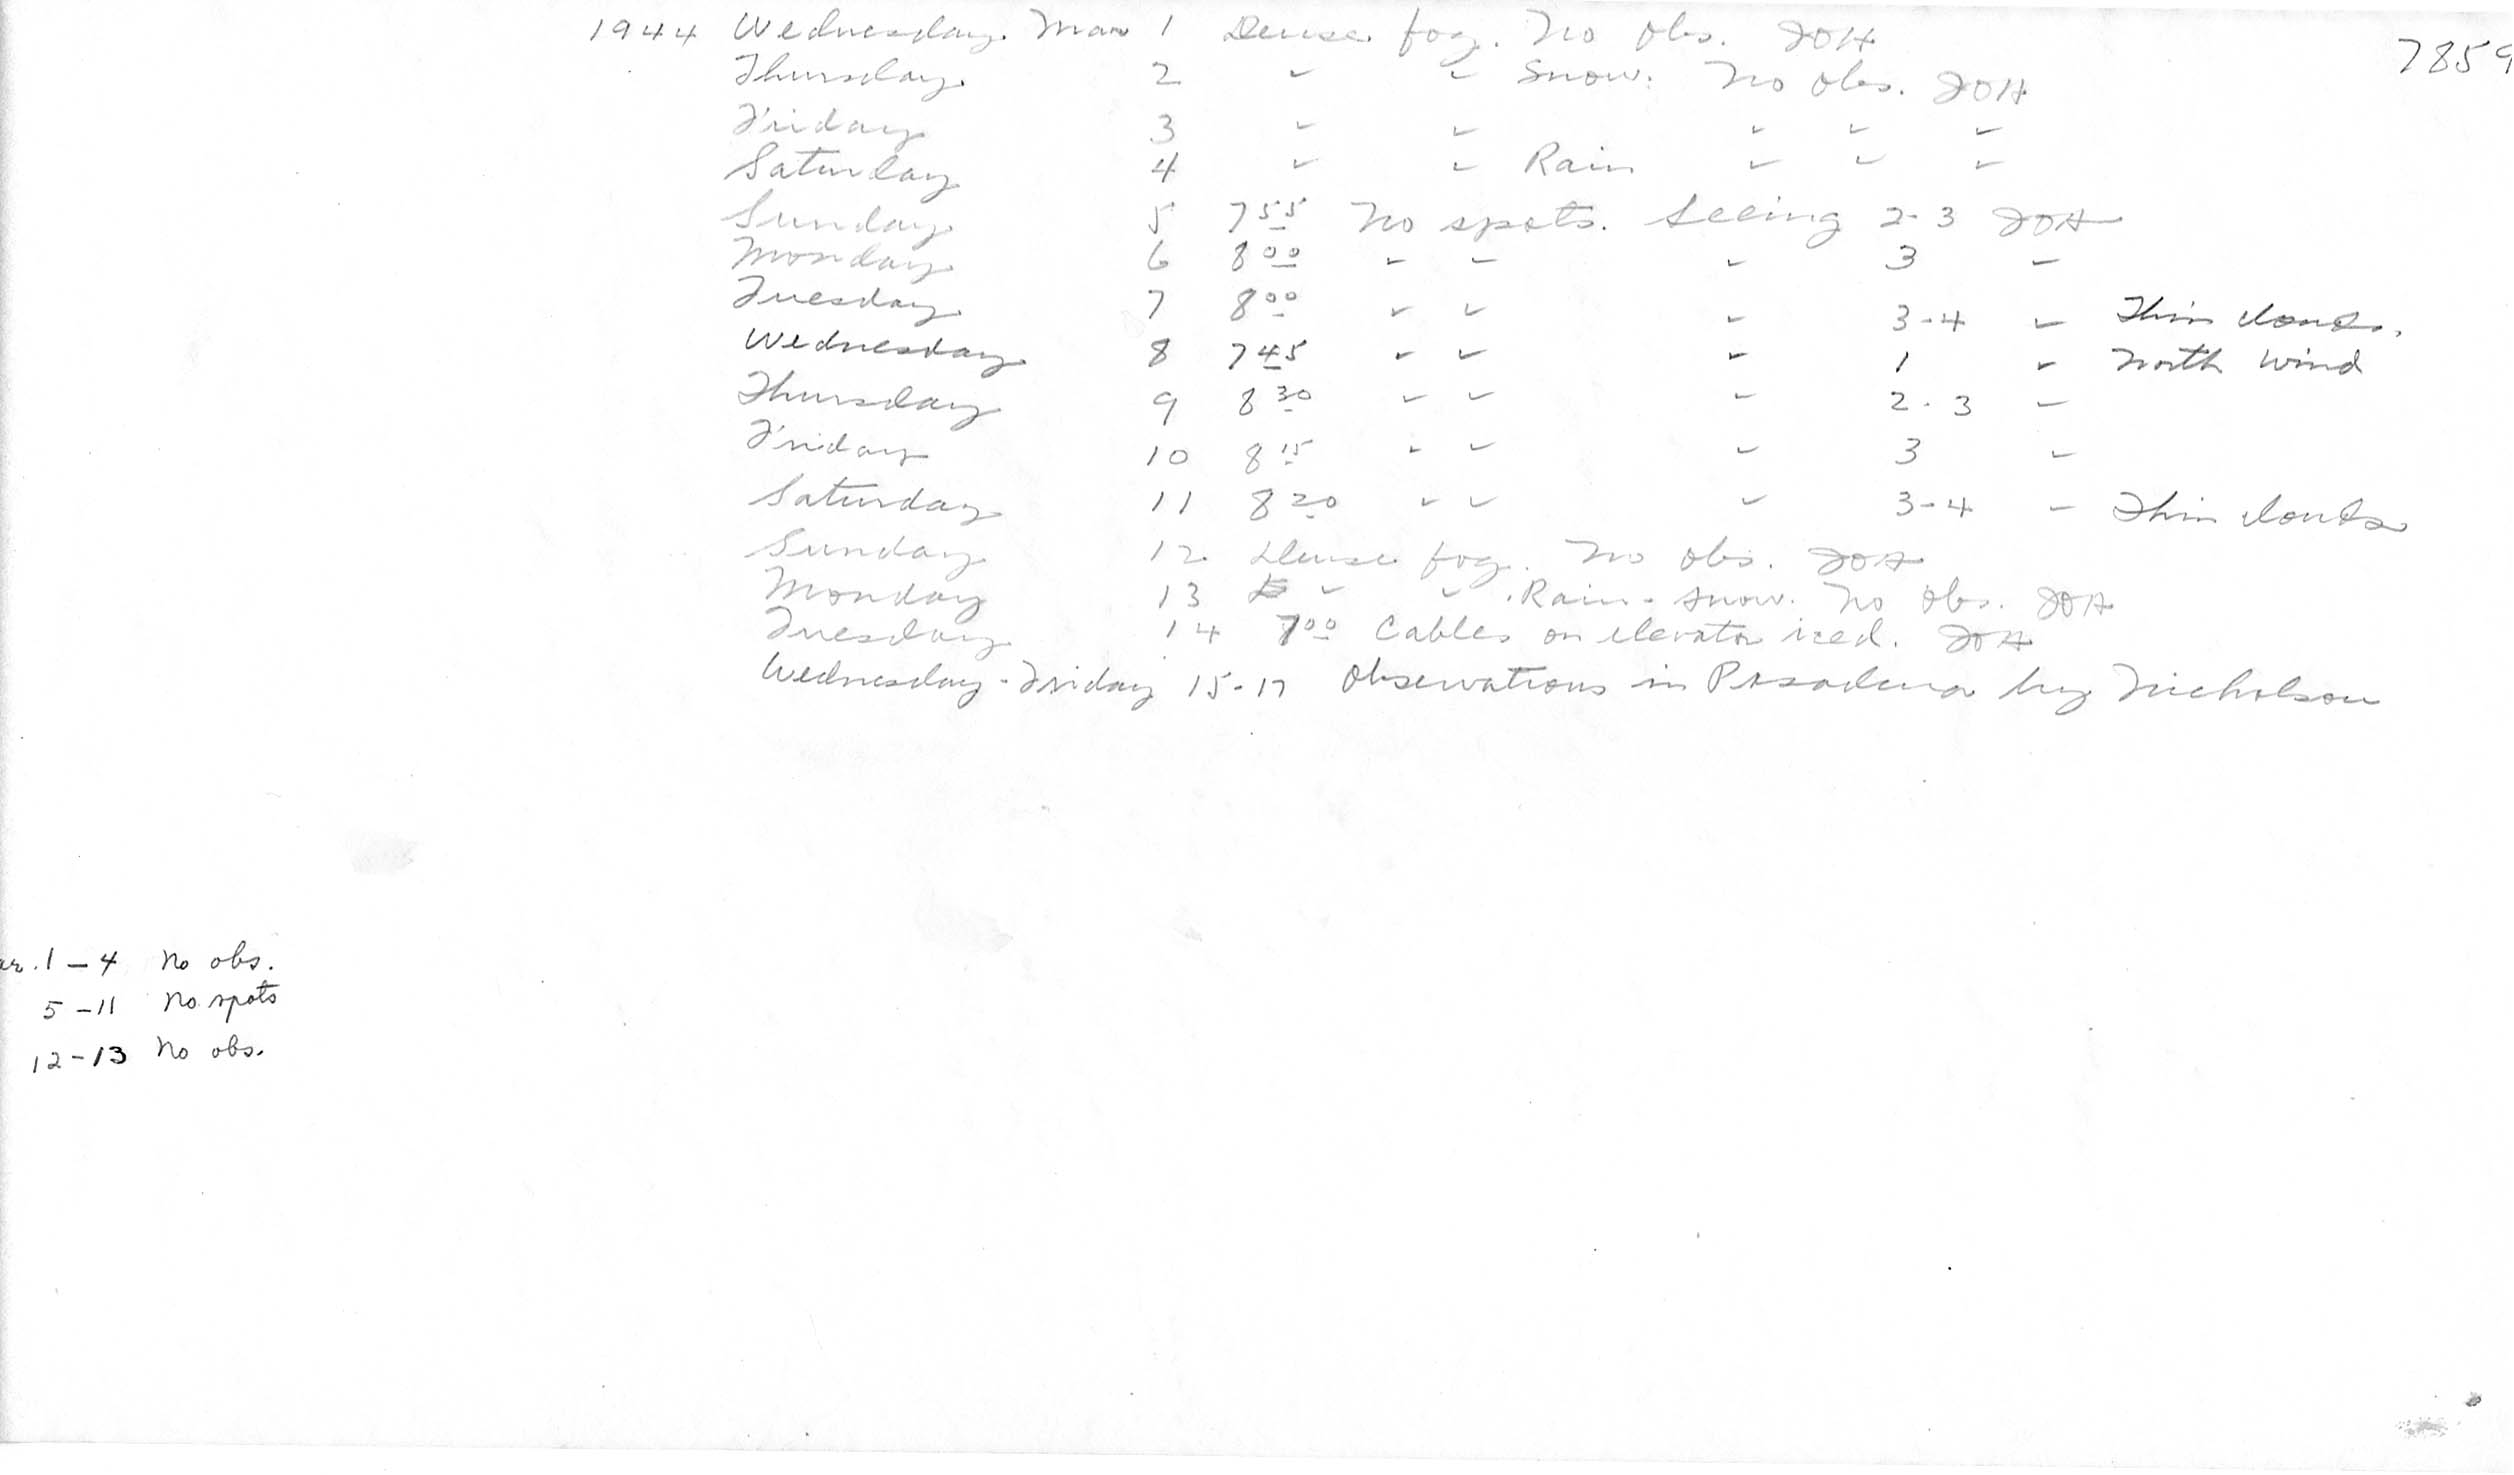 1944 Wednesday. Mar 1 Dense fog. No obs. JOH
7859
Thursday. 2 " " Snow. No obs. JOH
Friday 3 " " " " "
Saturday 4 " " Rain " " "
Sunday 5 7 55 No spots. Seeing 2-3 JOH
Monday 6 8 00 " " " 3 "
Tuesday 7 8 00 " " " 3-4 " Thin clouds.
Wednesday 8 7 45 " " " 1 " North Wind
Thursday 9 8 30 " " " 2-3 "
Friday 10 8 15 " " " 3 "
Saturday 11 8 20 " " " 3-4 " Thin clouds
Sunday 12 Dense fog. No obs. JOH
Monday 13 " " . Rain - snow. No obs. JOH
Tuesday 14 7 00 Cables on elevator iced. JOH
Wednesday - Friday 15-17 Observations in Pasadena by Nicholson
ar. 1 – 4 No obs.
5 – 11 No spots
12 – 13 No obs.